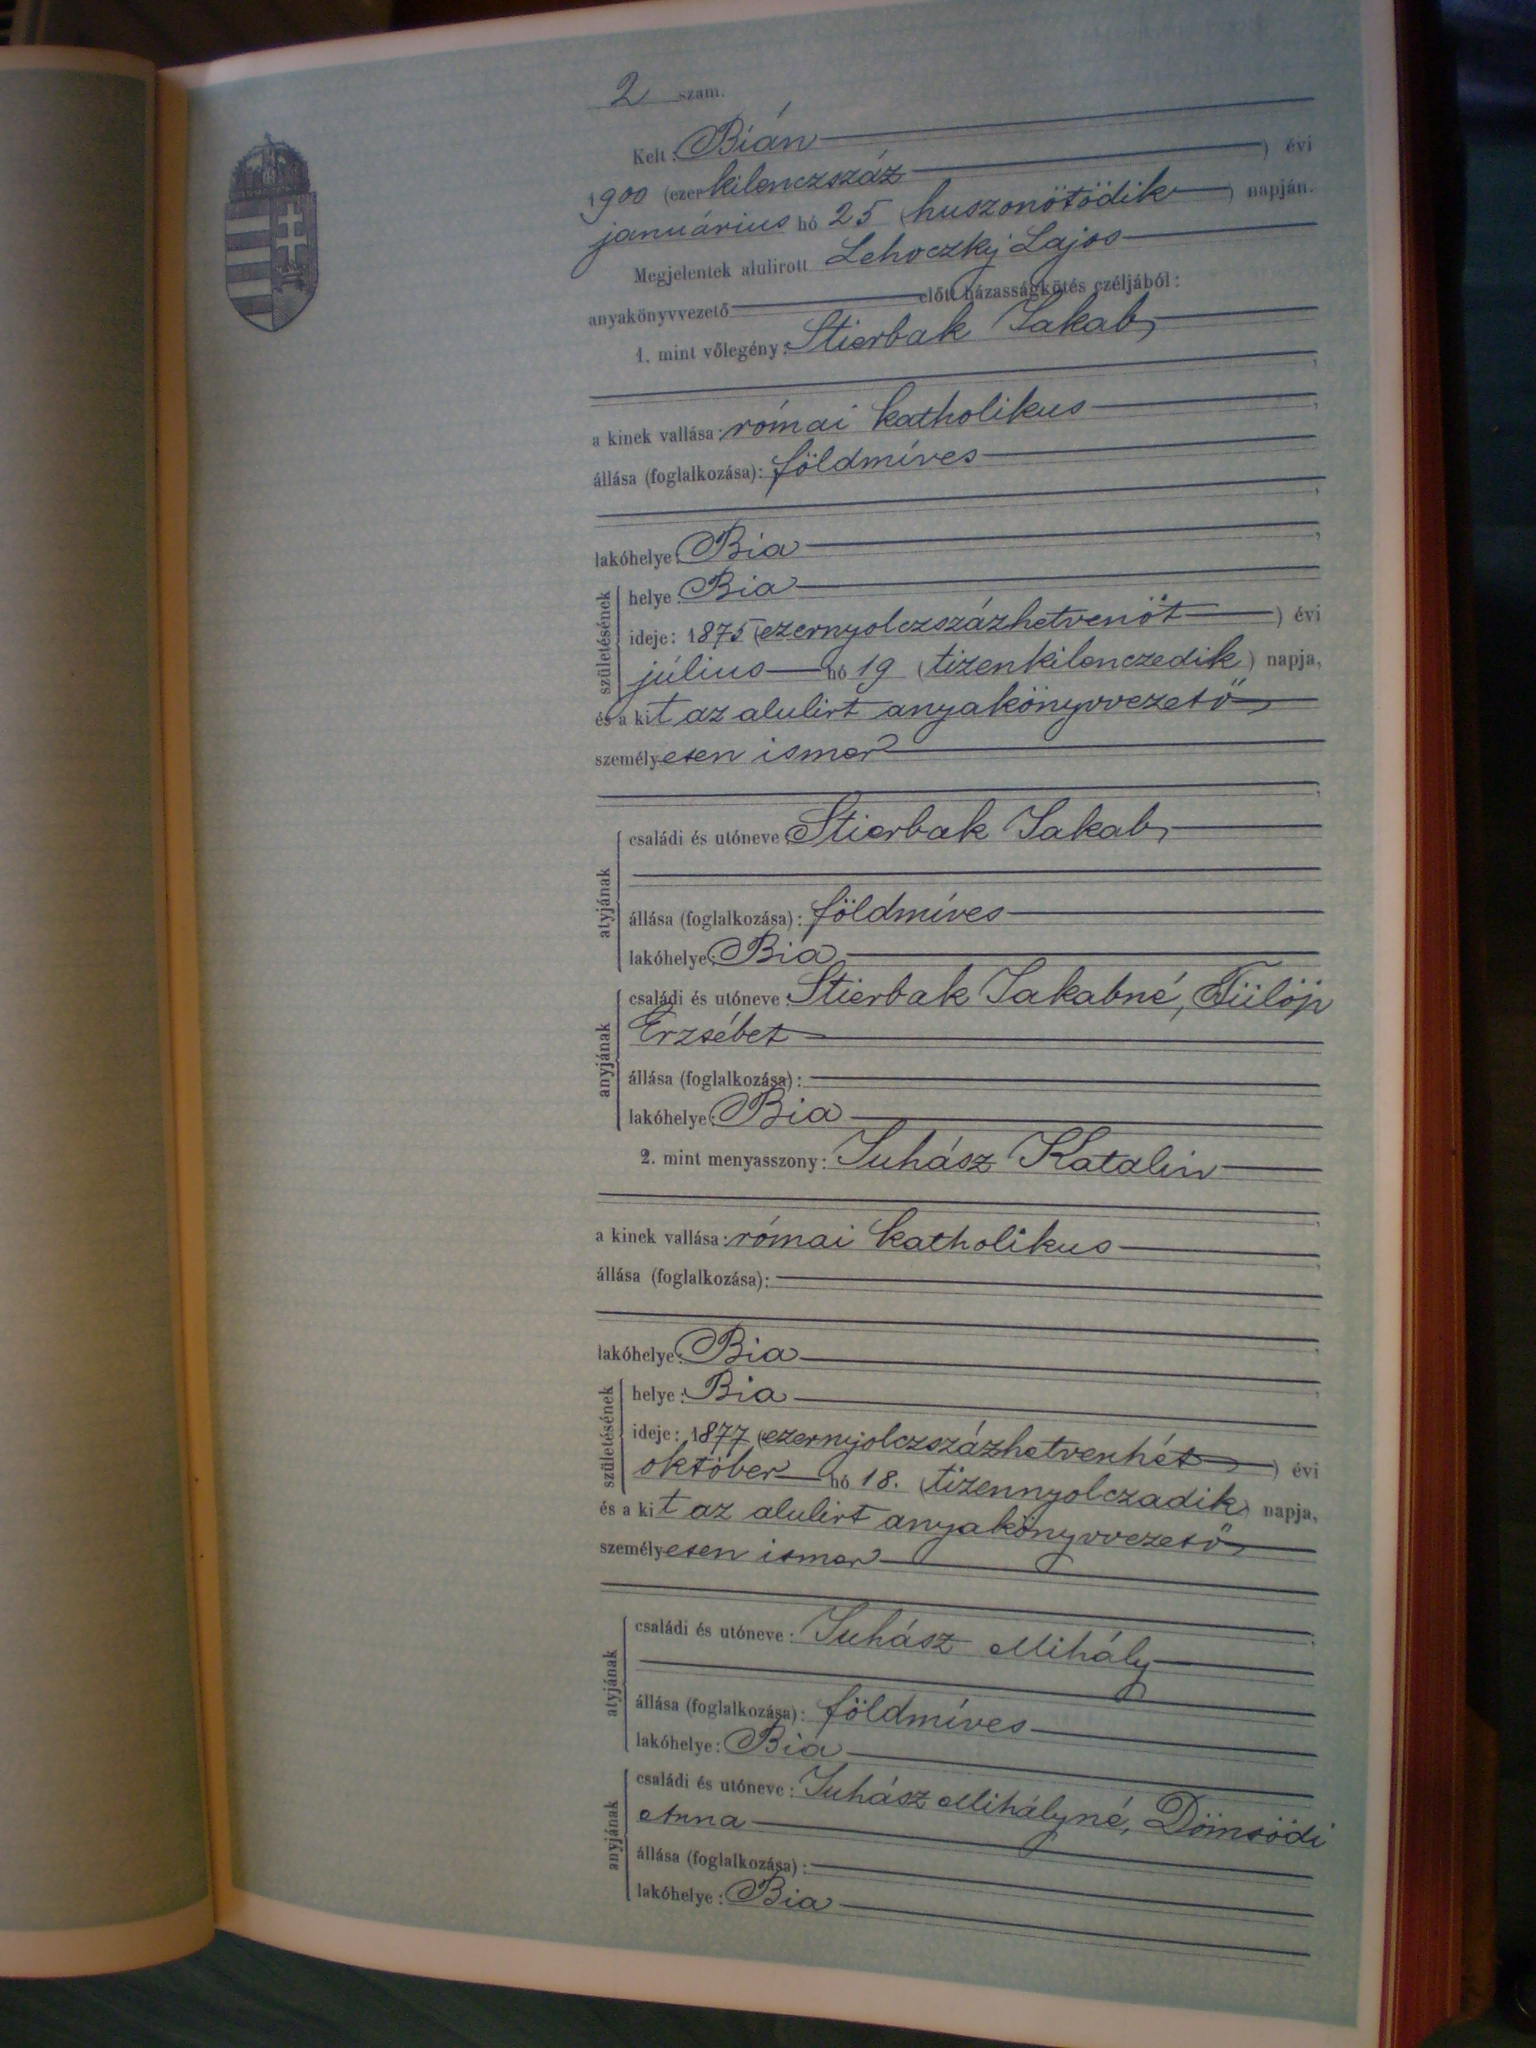 2 szam.
Kelt: Bián
1900 (ezerkilenczszáz) évi
január​ius hó 25 (huszonötödik) napján.
Megjelentek alulirott Lehoczky Lajos
anyakönyvvezető előtt házasságkötés czéljából:
1. mint vőlegény: Stierbak Jakab,
a kinek vallása: római katholikus,
állása (foglalkozása): földmíves
lakóhelye: Bia,
születésének
helye: Bia
ideje: 1875 (ezernyolczszázhetvenöt) évi
július hó 19 (tizenkilenczedik) napja,
és a kit az alulirt anyakönyvvezető
személyesen ismer
atyjának
családi és utóneve: Stierbak Jakab,
állása (foglalkozása): földmíves
lakóhelye: Bia
anyjának
családi és utóneve: Stierbak Jakabné, Fülöp
Erzsébet
állása (foglalkozása):
lakóhelye: Bia
2. mint menyasszony: Juhász Katalin
a kinek vallása: római katholikus
állása (foglalkozása):
lakóhelye: Bia
születésének
helye: Bia
ideje: 1877 (ezernyolczszázhetvenhét) évi
október hó 18. (tizennyolczadik) napja,
és a kit az alulirt anyakönyvvezető
személyesen ismer
atyjának
családi és utóneve: Juhász Mihály
állása (foglalkozása): földmíves
lakóhelye: Bia
anyjának
családi és utóneve: Juhász Mihályné, Dömsödi
Anna
állása (foglalkozása):
lakóhelye: Bia